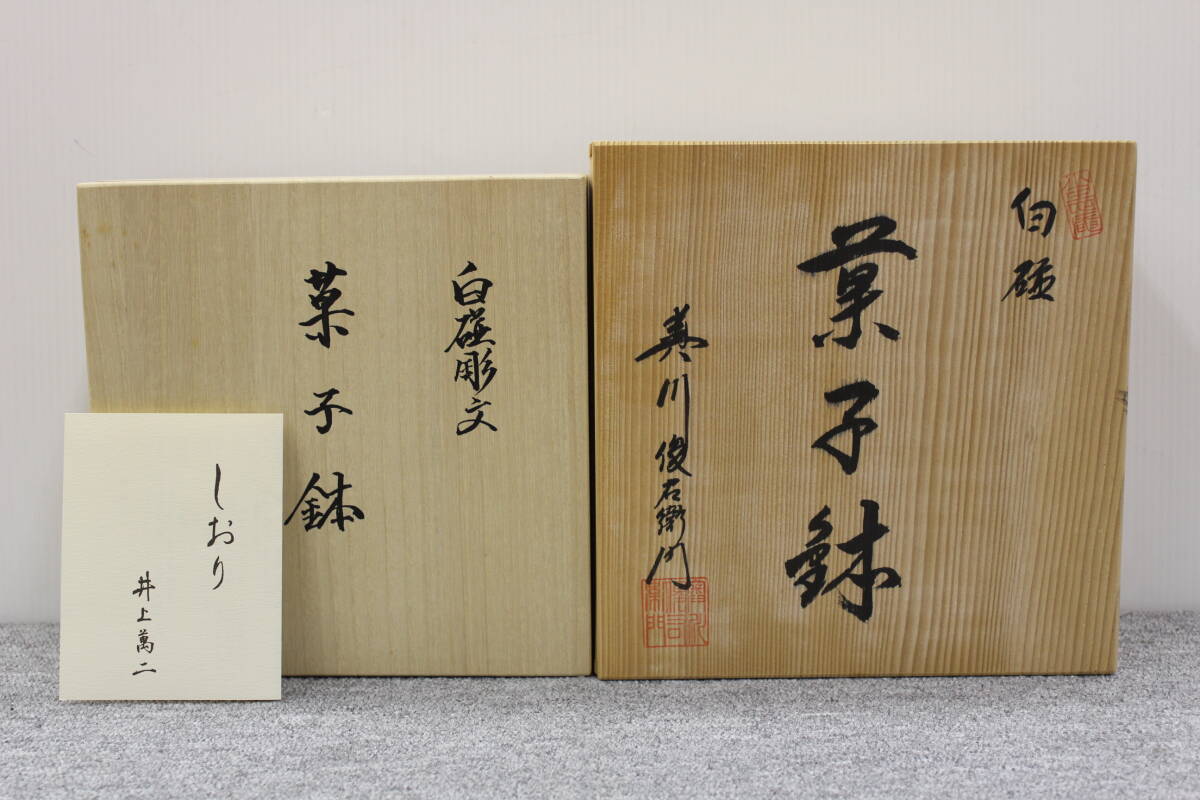 白磁
菓子鉢
奥川俊右衛門
白磁彫文
菓子鉢
しおり
井上萬二